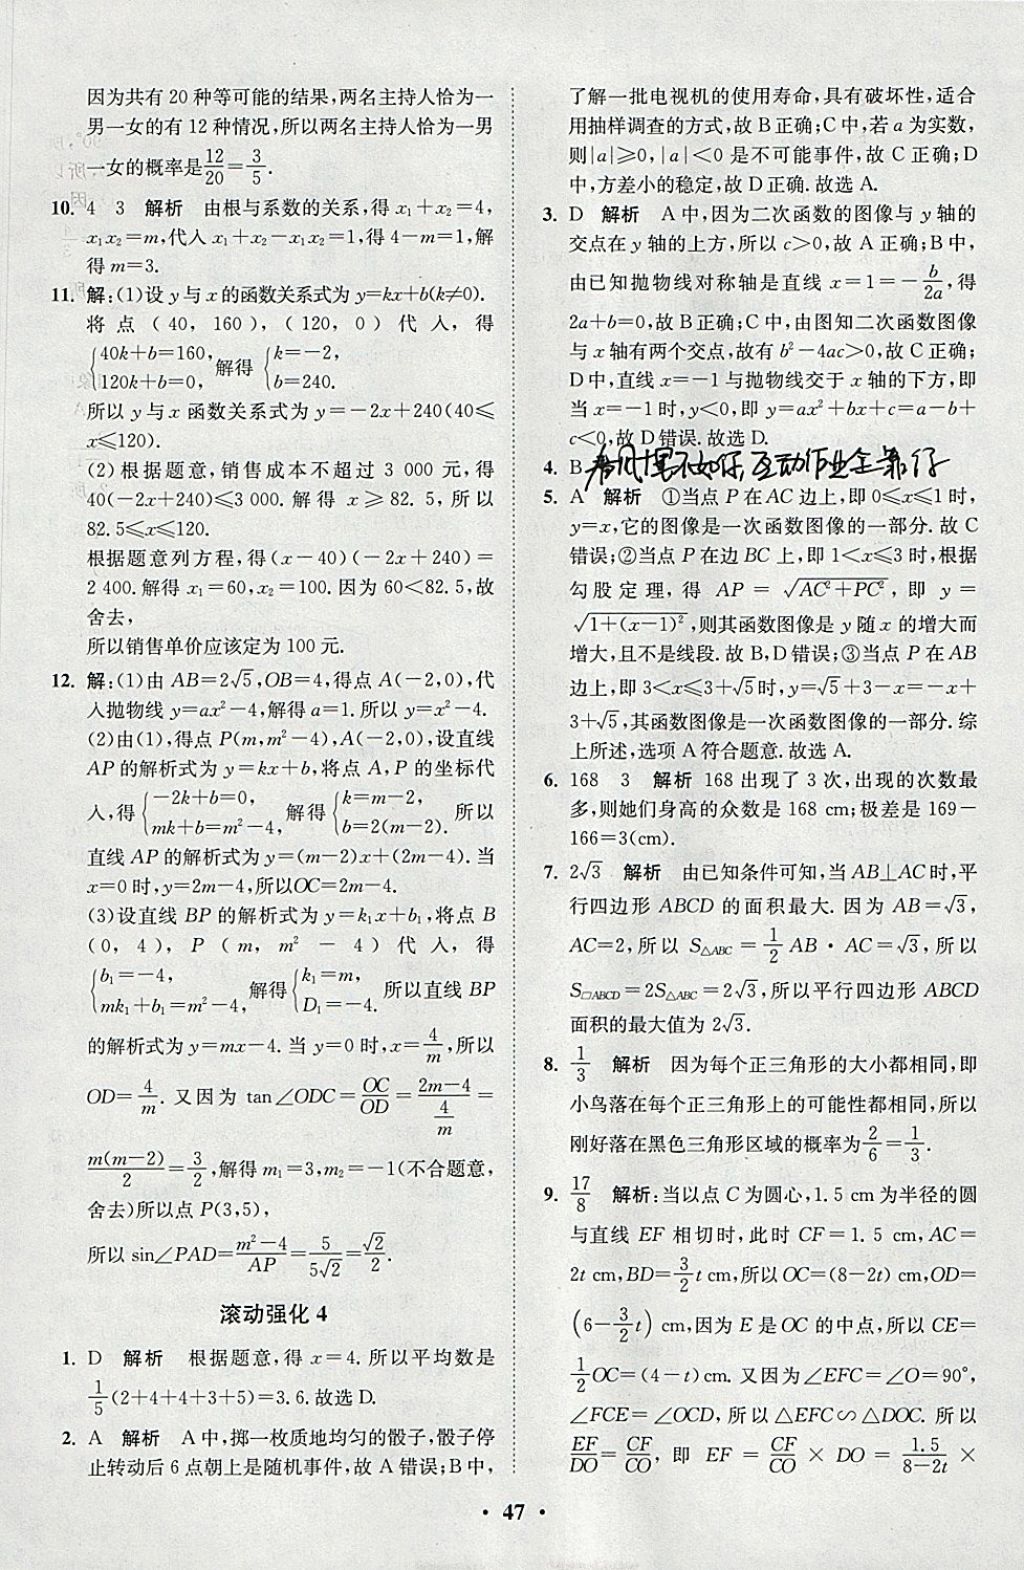 因为共有 20 种等可能的结果,两名主持人恰为一
男一女的有 12 种情况,所以两名主持人恰为一男
一女的概率是12/20=3/5.
10. 4 3 解析 由根与系数的关系,得 x₁+x₂=4,
x₁x₂=m,代入 x₁+x₂-x₁x₂=1,得 4-m=1,解
得 m=3.
11. 解:(1)设 y 与 x 的函数关系式为 y=kx+b(k≠0).
将点(40,160),(120,0)代入,得
{40k+b=160, 120k+b=0, 解得 {k=-2, b=240.
所以 y 与 x 函数关系式为 y=-2x+240(40≤
x≤120).
(2)根据题意,销售成本不超过 3 000 元,得
40(-2x+240)≤3 000. 解得 x≥82.5,所以
82.5≤x≤120.
根据题意列方程,得(x-40)(-2x+240)=
2 400. 解得 x₁=60,x₂=100. 因为 60<82.5,故
舍去,
所以销售单价应该定为 100 元.
12. 解:(1)由 AB=2√5,OB=4,得点 A(-2,0),代
入抛物线 y=ax²-4,解得 a=1. 所以 y=x²-4.
(2)由(1),得点 P(m,m²-4),A(-2,0),设直线
AP 的解析式为 y=kx+b,将点 A,P 的坐标代
入,得{-2k+b=0, mk+b=m²-4, 解得{k=m-2, b=2(m-2). 所以
直线 AP 的解析式为 y=(m-2)x+(2m-4). 当
x=0 时,y=2m-4,所以OC=2m-4.
(3)设直线 BP 的解析式为 y=k₁x+b₁,将点 B
(0,4),P(m,m²-4)代入,得
{b₁=-4, mk₁+b₁=m²-4, 解得{k₁=m, D₁=-4. 所以直线 BP
的解析式为 y=mx-4. 当 y=0 时,x=4/m,所以
OD=4/m. 又因为 tan∠ODC=OC/OD=(2m-4)/(4/m)=
m(m-2)/2=3/2,解得 m₁=3,m₂=-1(不合题意,
舍去)所以点 P(3,5),
所以 sin∠PAD=(m²-4)/AP=5/(5√2)=√2/2.
滚动强化 4
1. D 解析 根据题意,得 x=4. 所以平均数是
1/5(2+4+4+3+5)=3.6. 故选 D.
2. A 解析 A 中,掷一枚质地均匀的骰子,骰子停
止转动后 6 点朝上是随机事件,故 A 错误;B 中,
了解一批电视机的使用寿命,具有破坏性,适合
用抽样调查的方式,故 B 正确;C 中,若 a 为实数,
则|a|≥0,|a|<0 是不可能事件,故 C 正确;D
中,方差小的稳定,故 D 正确. 故选 A.
3. D 解析 A 中,因为二次函数的图像与 y 轴的
交点在 y 轴的上方,所以 c>0,故 A 正确;B 中,
由已知抛物线对称轴是直线 x=1=-b/2a,得
2a+b=0,故 B 正确;C 中,由图知二次函数图像
与 x 轴有两个交点,故有 b²-4ac>0,故 C 正确;
D 中,直线 x=-1 与抛物线交于 x 轴的下方,即
当 x=-1 时,y<0,即 y=ax²+bx+c=a-b+
c<0,故 D 错误. 故选 D.
4. B
5. A 解析 ①当点 P 在 AC 边上,即 0≤x≤1 时,
y=x,它的图像是一次函数图像的一部分. 故 C
错误;②当点 P 在边 BC 上,即 1<x≤3 时,根据
勾股定理,得 AP=√(AC²+PC²),即 y=
√(1+(x-1)²),则其函数图像是 y 随 x 的增大而
增大,且不是线段. 故 B,D 错误;③当点 P 在 AB
边上,即 3<x≤3+√5时,y=√5+3-x=-x+
3+√5,其函数图像是一次函数图像的一部分. 综
上所述,选项 A 符合题意. 故选 A.
6. 168 3 解析 168 出现了 3 次,出现的次数最
多,则她们身高的众数是 168 cm;极差是 169-
166=3(cm).
7. 2√3 解析 由已知条件可知,当 AB⊥AC 时,平
行四边形 ABCD 的面积最大. 因为 AB=√3,
AC=2,所以 S△ABC=1/2 AB·AC=√3,所以
S□ABCD=2S△ABC=2√3,所以平行四边形 ABCD
面积的最大值为 2√3.
8. 1/3 解析 因为每个正三角形的大小都相同,即
小鸟落在每个正三角形上的可能性都相同,所以
刚好落在黑色三角形区域的概率为2/6=1/3.
9. 17/8 解析:当以点 C 为圆心,1.5 cm 为半径的圆
与直线 EF 相切时,此时 CF=1.5 cm,AC=
2t cm,BD=3/2 t cm,所以OC=(8-2t) cm,OD=
(6-3/2 t) cm,因为 E 是 OC 的中点,所以 CE=
1/2 OC=(4-t)cm. 又因为∠EFC=∠O=90°,
∠FCE=∠OCD,所以△EFC∽△DOC. 所以
EF/DO=CF/CO,即 EF=CF/CO×DO=1.5/(8-2t)×
• 47 •